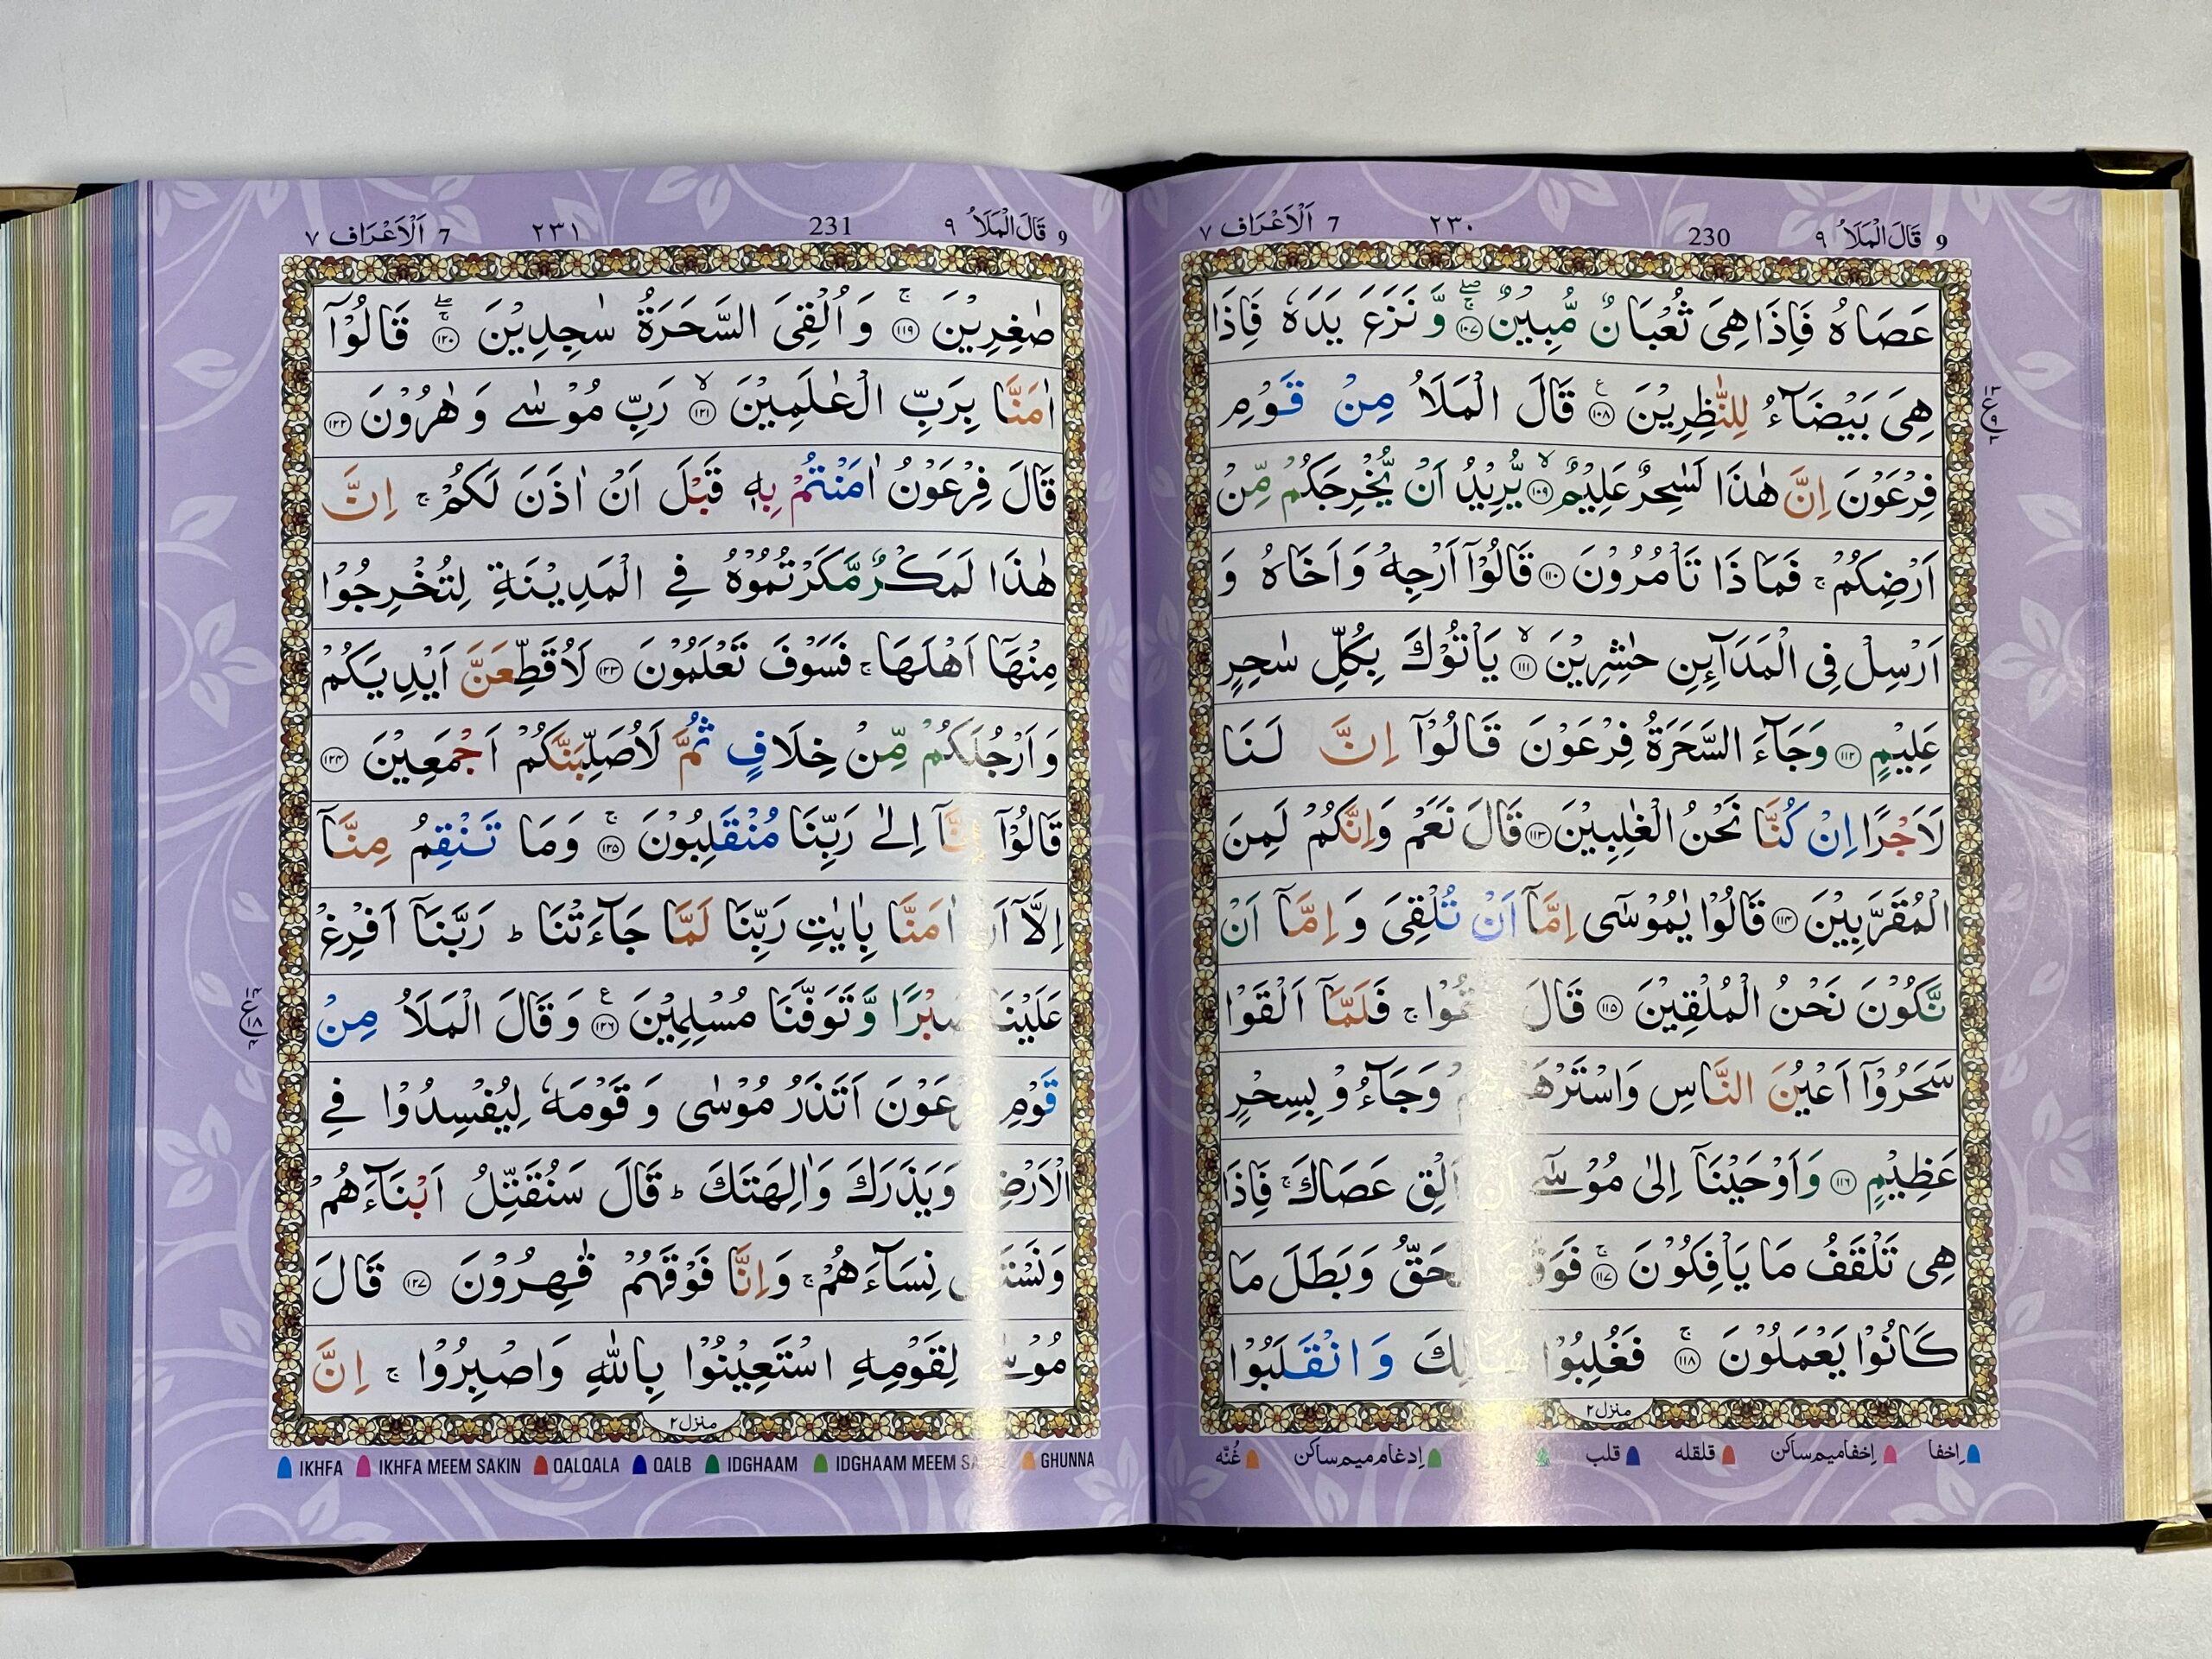 9 قَالَ الْمَلَاُ ٩ 230 ٢٣٠ 7 اَلْاَعْرَاف ٧
عَصَاهُ فَاِذَا هِىَ ثُعْبَانٌ مُّبِيْنٌ ۚۖ ١٠٧ وَّ نَزَعَ يَدَهٗ فَاِذَا
هِىَ بَيْضَآءُ لِلنّٰظِرِيْنَ ۧ ١٠٨ قَالَ الْمَلَاُ مِنْ قَوْمِ
فِرْعَوْنَ اِنَّ هٰذَا لَسٰحِرٌ عَلِيْمٌ ۙ ١٠٩ يُّرِيْدُ اَنْ يُّخْرِجَكُمْ مِّنْ
اَرْضِكُمْ ۚ فَمَا ذَا تَاْمُرُوْنَ ١١٠ قَالُوْٓا اَرْجِهْ وَ اَخَاهُ وَ
اَرْسِلْ فِى الْمَدَآئِنِ حٰشِرِيْنَ ۙ ١١١ يَاْتُوْكَ بِكُلِّ سٰحِرٍ
عَلِيْمٍ ١١٢ وَجَآءَ السَّحَرَةُ فِرْعَوْنَ قَالُوْٓا اِنَّ لَنَا
لَاَجْرًا اِنْ كُنَّا نَحْنُ الْغٰلِبِيْنَ ١١٣ قَالَ نَعَمْ وَاِنَّكُمْ لَمِنَ
الْمُقَرَّبِيْنَ ١١٤ قَالُوْا يٰمُوْسٰٓى اِمَّآ اَنْ تُلْقِىَ وَ اِمَّآ اَنْ
نَّكُوْنَ نَحْنُ الْمُلْقِيْنَ ١١٥ قَالَ ۚ فَلَمَّآ اَلْقَوْا
سَحَرُوْٓا اَعْيُنَ النَّاسِ وَجَآءُوْ بِسِحْرٍ
عَظِيْمٍ ١١٦ وَاَوْحَيْنَآ اِلٰى مُوْسٰٓى اَلْقِ عَصَاكَ ۚ فَاِذَا
هِىَ تَلْقَفُ مَا يَاْفِكُوْنَ ۚ ١١٧ وَبَطَلَ مَا
كَانُوْا يَعْمَلُوْنَ ۚ ١١٨ فَغُلِبُوْا وَانْقَلَبُوْا
منزل ٢
اِخفا اِخفامیم ساکن قلقله قلب اِدغام میم ساکن غُنّه
ع ٩
9 قَالَ الْمَلَاُ ٩ 231 ٢٣١ 7 اَلْاَعْرَاف ٧
صٰغِرِيْنَ ۚ ١١٩ وَ اُلْقِىَ السَّحَرَةُ سٰجِدِيْنَ ۚۖ ١٢٠ قَالُوْٓا
اٰمَنَّا بِرَبِّ الْعٰلَمِيْنَ ۙ ١٢١ رَبِّ مُوْسٰى وَ هٰرُوْنَ ١٢٢
قَالَ فِرْعَوْنُ اٰمَنْتُمْ بِهٖ قَبْلَ اَنْ اٰذَنَ لَكُمْ ۚ اِنَّ
هٰذَا لَمَكْرٌ مَّكَرْتُمُوْهُ فِى الْمَدِيْنَةِ لِتُخْرِجُوْا
مِنْهَآ اَهْلَهَا ۚ فَسَوْفَ تَعْلَمُوْنَ ١٢٣ لَاُقَطِّعَنَّ اَيْدِيَكُمْ
وَاَرْجُلَكُمْ مِّنْ خِلَافٍ ثُمَّ لَاُصَلِّبَنَّكُمْ اَجْمَعِيْنَ ١٢٤
قَالُوْٓا اِلٰى رَبِّنَا مُنْقَلِبُوْنَ ۚ ١٢٥ وَمَا تَنْقِمُ مِنَّآ
اِلَّآ اٰمَنَّا بِاٰيٰتِ رَبِّنَا لَمَّا جَآءَتْنَا ؕ رَبَّنَآ اَفْرِغْ
عَلَيْنَا صَبْرًا وَّ تَوَفَّنَا مُسْلِمِيْنَ ۧ ١٢٦ وَقَالَ الْمَلَاُ مِنْ
قَوْمِ فِرْعَوْنَ اَتَذَرُ مُوْسٰى وَ قَوْمَهٗ لِيُفْسِدُوْا فِى
الْاَرْضِ وَيَذَرَكَ وَاٰلِهَتَكَ ؕ قَالَ سَنُقَتِّلُ اَبْنَآءَهُمْ
نِسَآءَهُمْ ۚ وَاِنَّا فَوْقَهُمْ قٰهِرُوْنَ ١٢٧ قَالَ
مُوْسٰى لِقَوْمِهِ اسْتَعِيْنُوْا بِاللّٰهِ وَاصْبِرُوْا ۚ اِنَّ
منزل ٢
IKHFA IKHFA MEEM SAKIN QALQALA QALB IDGHAAM IDGHAAM MEEM GHUNNA
ع ١٨